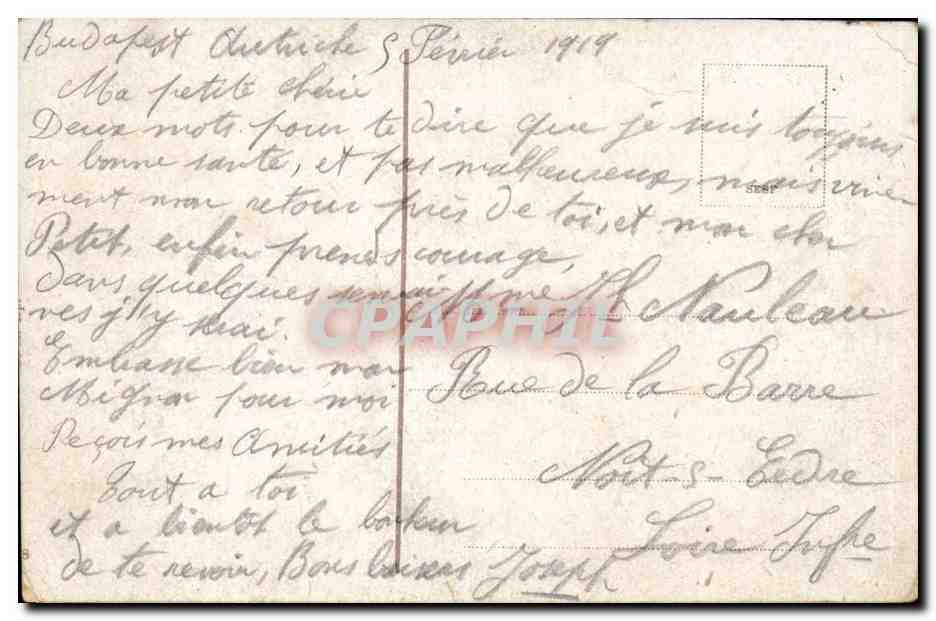 Budapest Autriche 5 Février 1919
Ma petite chérie
Deux mots pour te dire que je suis toujours
en bonne santé, et pas malheureux, mais vive
ment mon retour près de toi, et mon cher
Petit, enfin prends courage,
dans quelques semai-
nes j'y serai.
Embrasse bien mon
Mignon pour moi
Reçois mes Amitiés
Tout a toi
et a bientot le bonheur
de te revoir, Bons baisers Joseph
SESP
Nauleau
Rue de la Barre
Nort-s-Erdre
Loire Infre
CPAPHIL